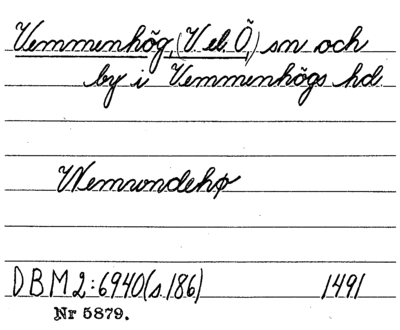 Vemmenhög, (V. el. Ö.) sn och
by i Vemmenhögs hd.
Wemundehø
DBM 2:6940 (s. 186) 1491
Nr 5879.